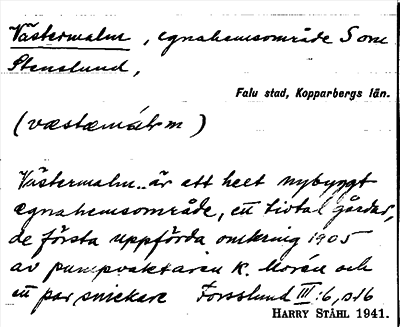 Västermalm, egnahemsområde S om
Stenslund,
Falu stad, Kopparbergs län.
(væstæmálm)
Västermalm.. är ett helt nybyggt
egnahemsområde, ett tiotal gårdar,
de första uppförda omkring 1905
av pumpvaktaren K. Morén och
ett par snickare Forsslund III:6, s. 16
HARRY STÅHL 1941.